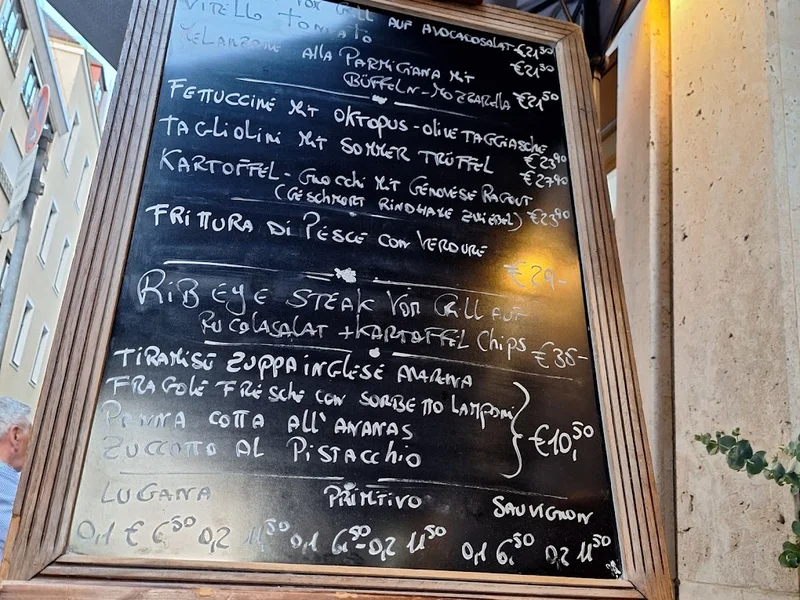 VOM GRILL AUF AVOCADOSALAT €21,50
VITELLO TONNATO €21,50
MELANZANE ALLA PARMIGIANA MIT
BÜFFELN-MOZZARELLA €21,50
FETTUCCINE MIT OKTOPUS-OLIVE TAGGIASCHE €23,90
TAGLIOLINI MIT SOMMER TRÜFFEL €27,90
KARTOFFEL-GNOCCHI MIT GENOVESE RAGOUT
(GESCHMORT RINDHAXE ZWIEBEL) €23,90
FRITTURA DI PESCE CON VERDURE
€29-
RIB EYE STEAK VOM GRILL AUF
RUCOLASALAT + KARTOFFEL Chips €35-
TIRAMISÙ ZUPPA INGLESE AMARENA
FRAGOLE FRESCHE CON SORBETTO LAMPONI
PANNA COTTA ALL'ANANAS €10,50
ZUCCOTTO AL PISTACCHIO
LUGANA PRIMITIVO SAUVIGNON
0,1 € 6,50 0,2 11,50 0,1 6,50-0,2 11,50 0,1 6,50 0,2 11,50